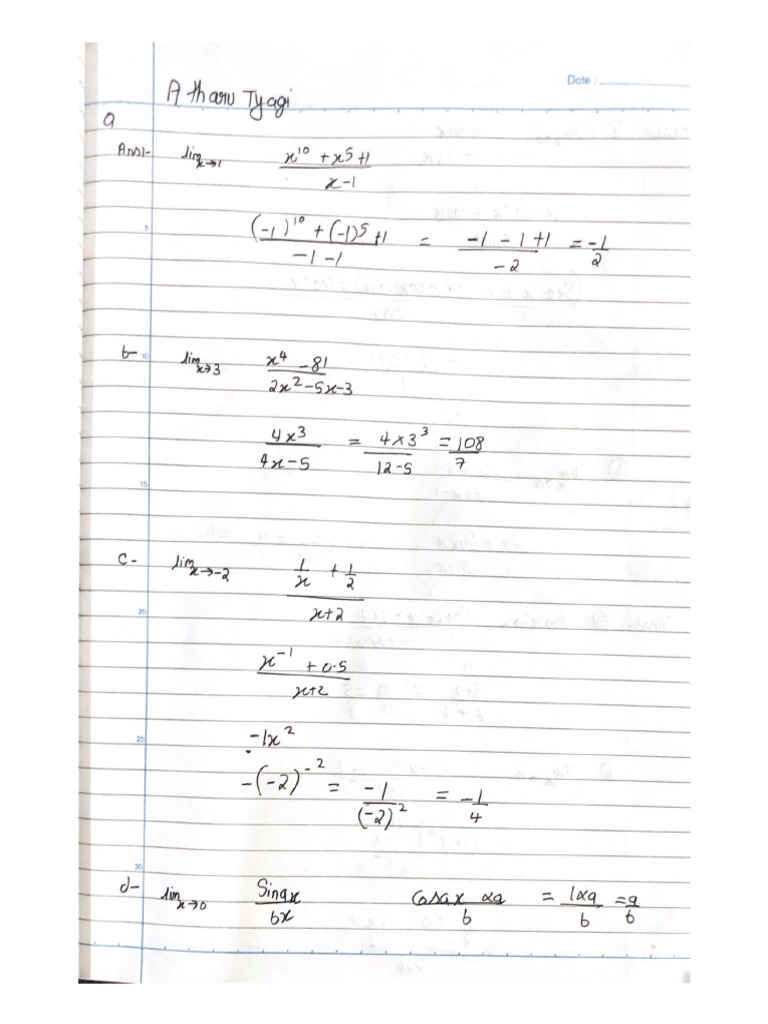 Date :
Atharv Tyagi
a
Ans1- lim x→1 (x^10 + x^5 + 1)/(x-1)
((-1)^10 + (-1)^5 + 1)/(-1-1) = (-1 - 1 + 1)/(-2) = -1/2
5
b- 10 lim x→3 (x^4 - 81)/(2x^2 - 5x - 3)
4x^3/(4x-5) = (4×3^3)/(12-5) = 108/7
15
c- lim x→-2 (1/x + 1/2)/(x+2)
20
(x^-1 + 0.5)/(x+2)
25 -1x^2
-(-2)^-2 = -1/(-2)^2 = -1/4
30
d- lim x→0 Sinax/bx Cosax × a/b = 1×a/b = a/b